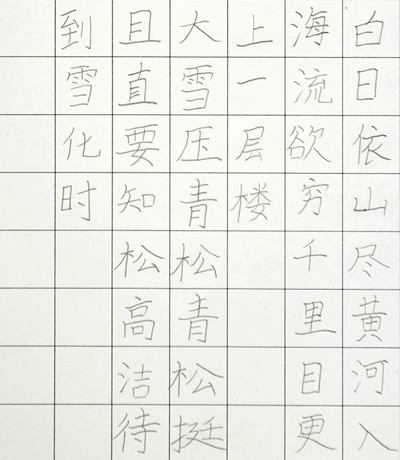 白日依山尽黄河入
海流欲穷千里目更
上一层楼
大雪压青松青松挺
且直要知松高洁待
到雪化时